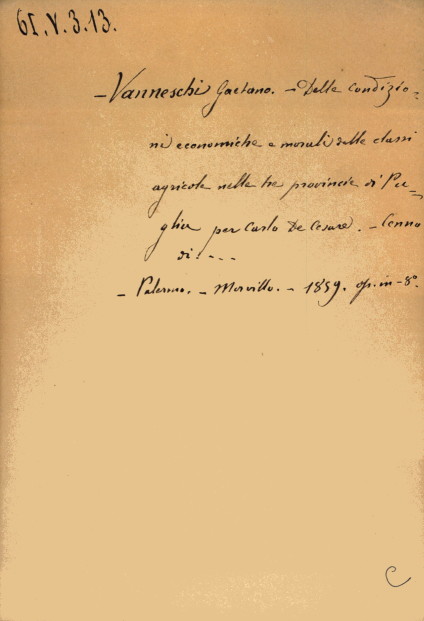 61.V.3.13.
- Vanneschi Gaetano. - Delle condizio=
ni economiche e morali delle classi
agricole nelle tre provincie di Pu=
glia per Carlo De Cesare. - Cenno
di. - - -
- Palermo. - Morvillo. - 1859. op. in-8°.
C